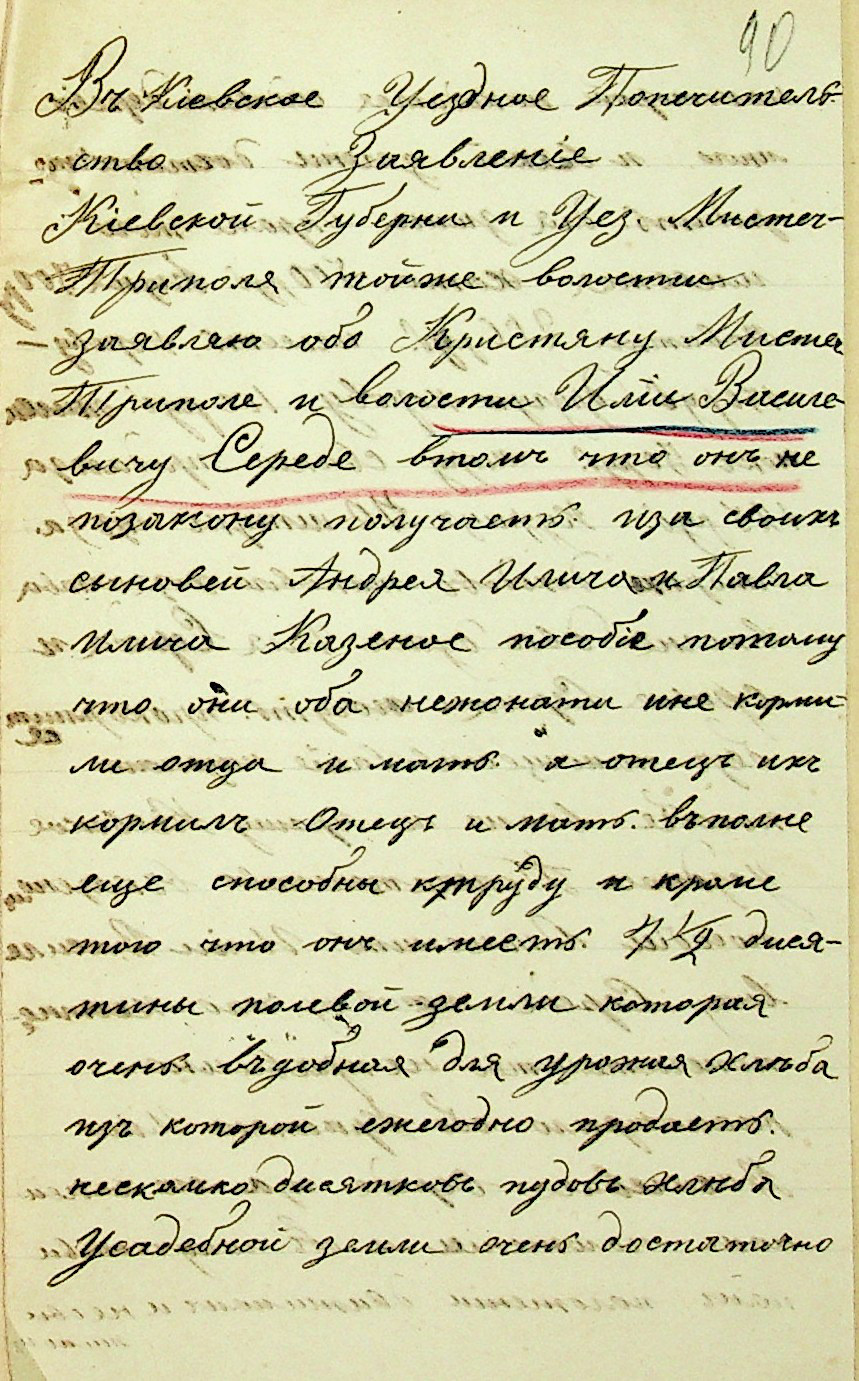 90
Въ Кіевское Уездное Попечитель-
ство Заявленіе
Кіевской Губерни и Уез. Мистеч-
Триполя тойже волости
заявляю обо Кристяну Мистеч
Триполе и волости Иліи Василе-
вичу Середе втомъ что онъ не
позакону получаетъ иза своихъ
сыновей Андрея Илича и Павла
Илича Казеное пособіе потому
что они оба нежонати ине корми-
ли отца и мать а отецъ ихъ
кормилъ Отецъ и мать въполне
еще способны ктруду и кроме
того что онъ имеетъ 7 1/2 дися-
тины полевой земли которая
очень въдобная для урожая хлѣба
изъ которой ежегодно продаетъ
несколко дисятковъ пудовъ хлѣба
Усадебной земли очень достаточно